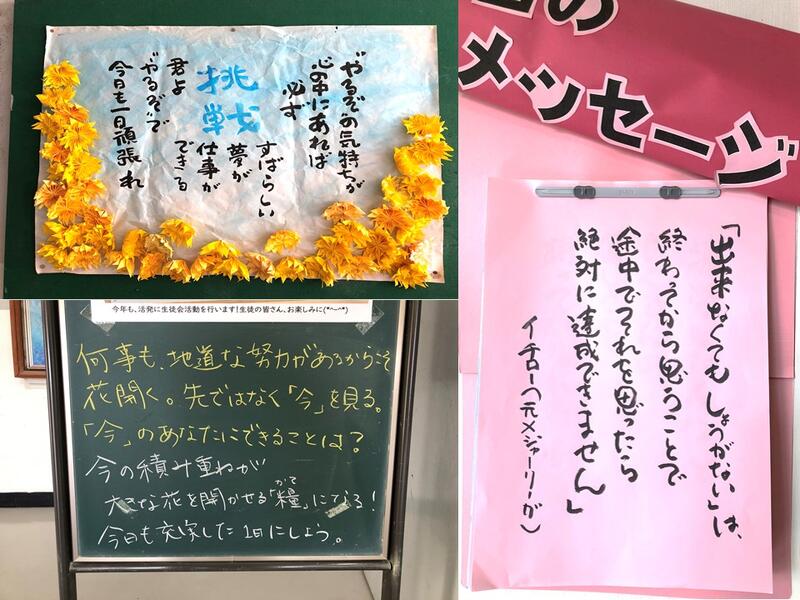 "やるぞ"の気持ちが
心の中にあれば
必ず
挑戦
すばらしい
夢が
仕事が
できる
君よ
"やるぞ"で
今日も一日頑張れ
の
メッセージ
「出来なくてもしょうがない」は、
終わってから思うことで
途中でそれを思ったら
絶対に達成できません」
イチロー(元メジャーリーガー)
今年も、活発に生徒会活動を行います!生徒の皆さん、お楽しみに(*^-^*)
何事も、地道な努力があるからこそ
花開く。先ではなく「今」を見る。
「今」のあなたにできることは?
今の積み重ねが
大きな花を開かせる「糧」になる!
かて
今日も充実した1日にしよう。